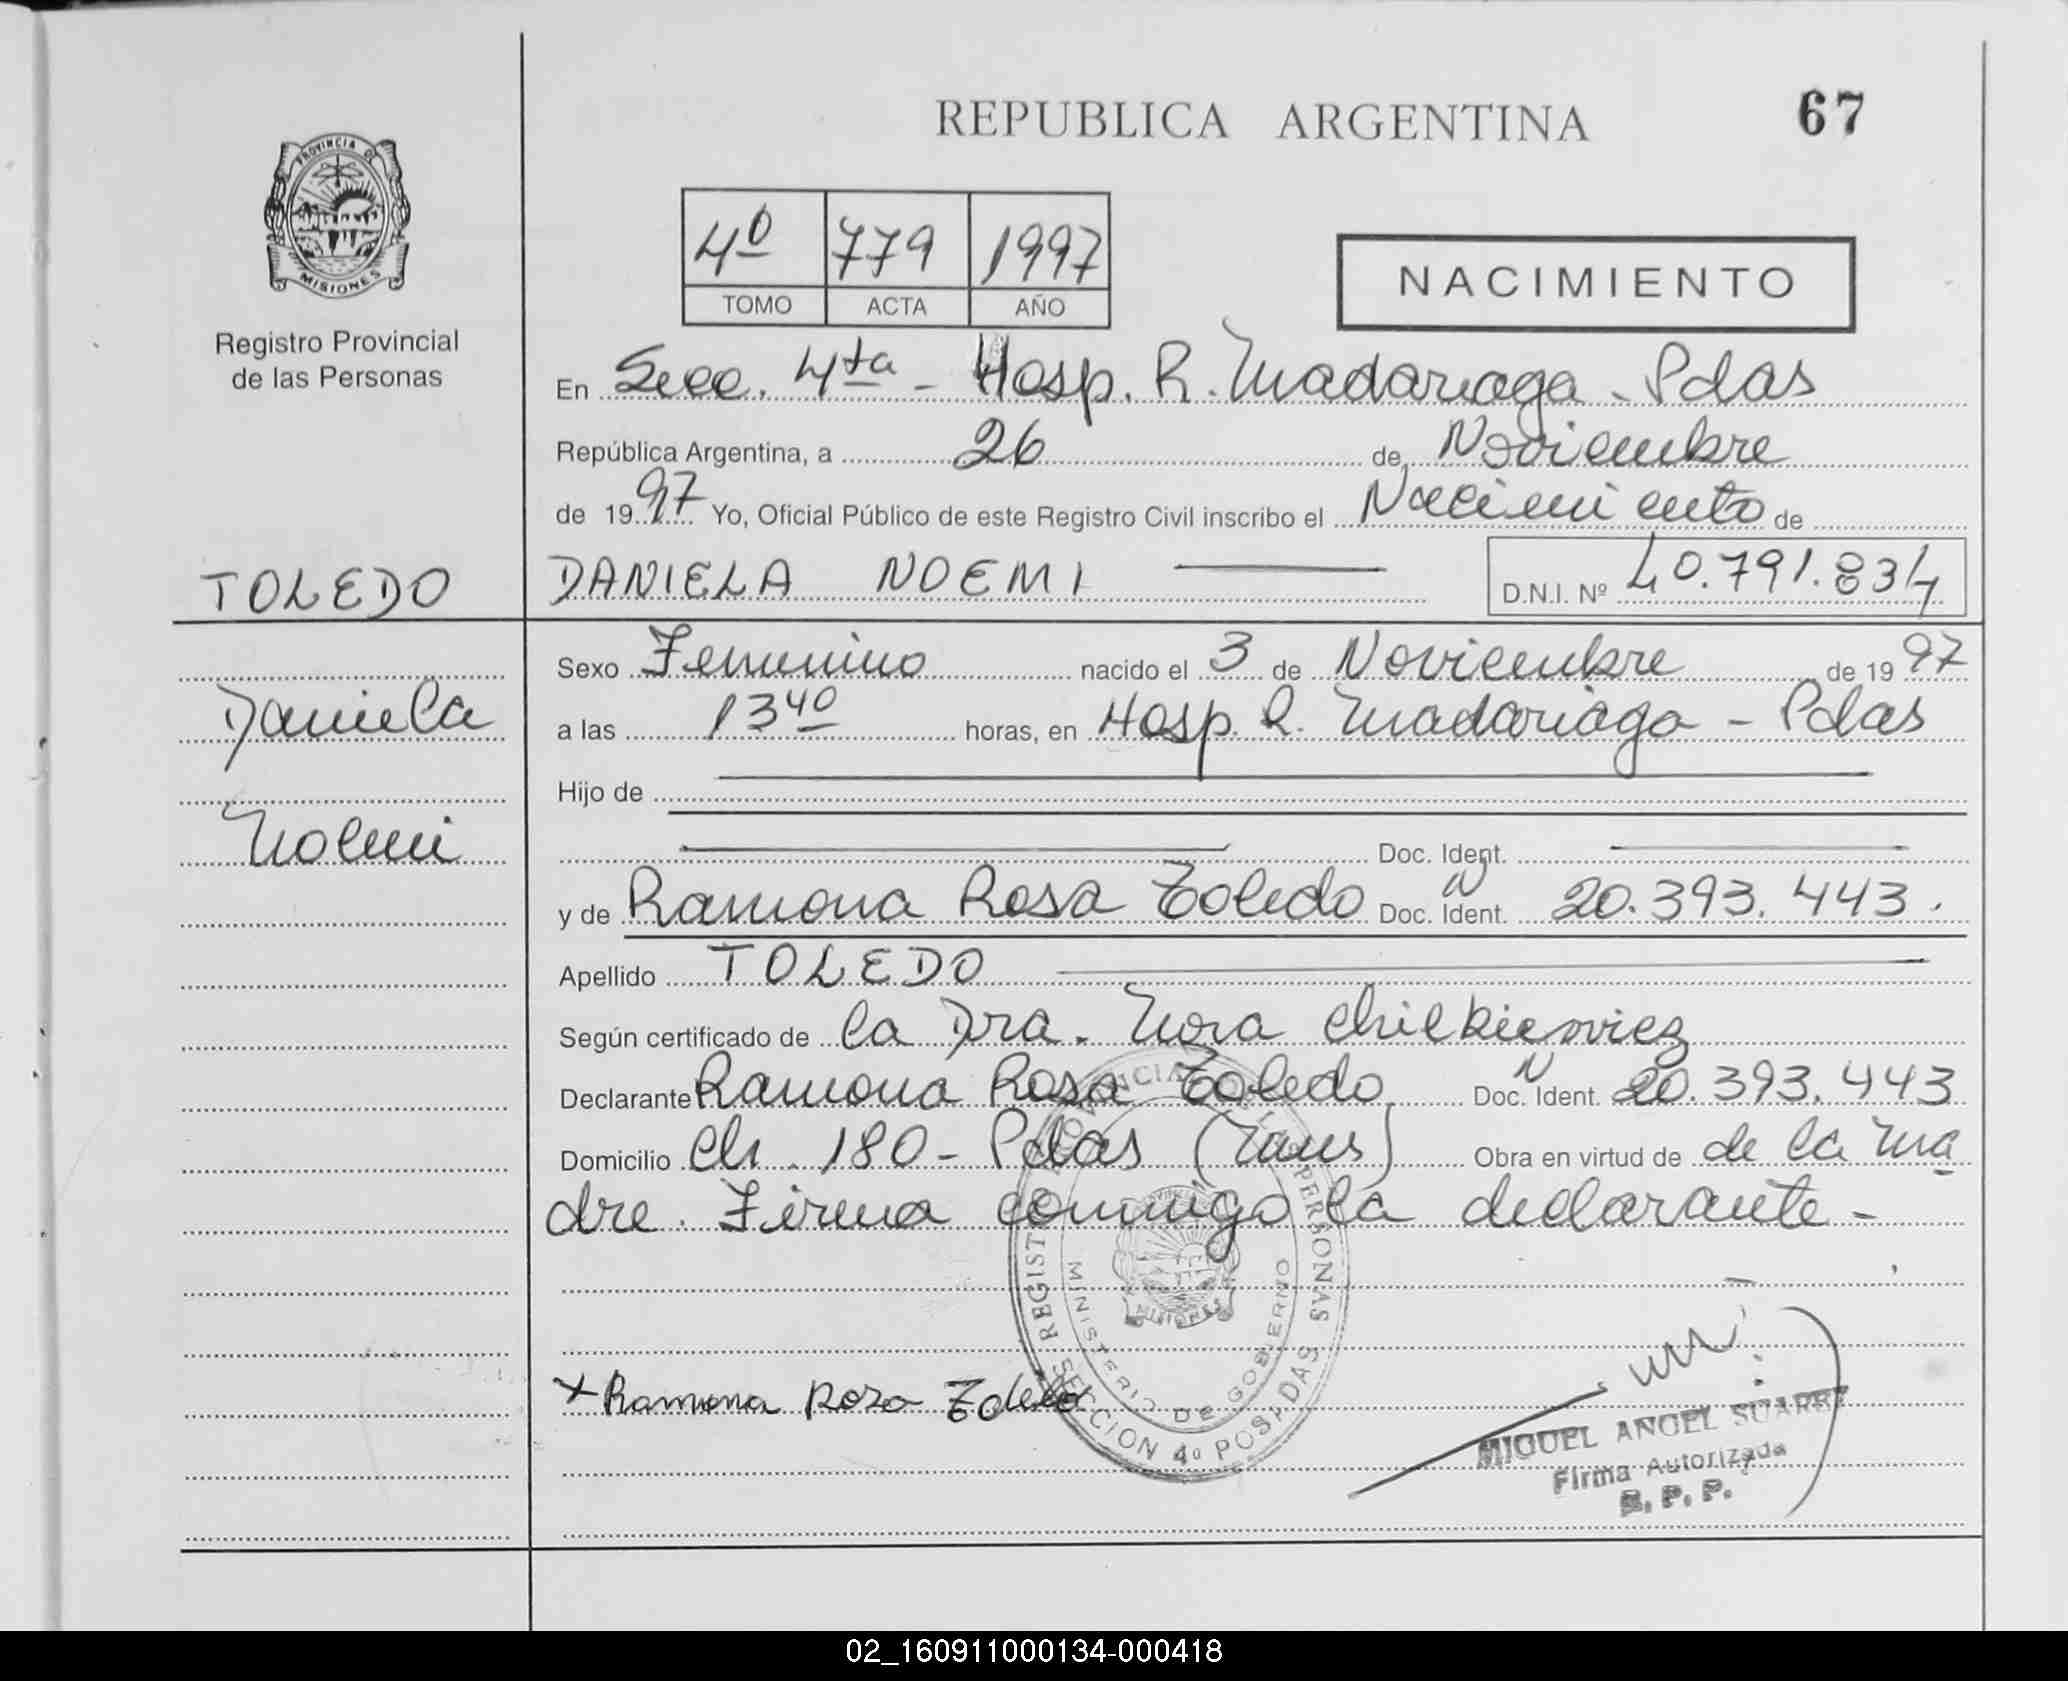 REPUBLICA ARGENTINA
67
PROVINCIA DE
MISIONES
Registro Provincial
de las Personas
4º 779 1997
TOMO ACTA AÑO
NACIMIENTO
En Secc. 4ta - Hosp. R. Madariaga - Pdas
República Argentina, a 26 de Noviembre
de 1997 Yo, Oficial Público de este Registro Civil inscribo el Nacimiento de
TOLEDO
DANIELA NOEMI
D.N.I. Nº 40.791.834
Daniela
Noemi
Sexo Femenino nacido el 3 de Noviembre de 1997
a las 13 40 horas, en Hosp. R. Madariaga - Pdas
Hijo de
Doc. Ident.
y de Ramona Rosa Toledo Doc. Ident. N 20.393.443.
Apellido TOLEDO
Según certificado de la Dra. Nora Chilkieviez
Declarante Ramona Rosa Toledo Doc. Ident. N 20.393.443
Domicilio Ch. 180 - Pdas (Mnes) Obra en virtud de de la ma
dre. Firma conmigo la declarante -
REGISTRO PROVINCIAL DE LAS PERSONAS
MINISTERIO DE GOBIERNO
MISIONES
SECCION 4º POSADAS
x Ramona Rosa Toledo
MIGUEL ANGEL SUAREZ
Firma Autorizada
R. P. P.
02_160911000134-000418